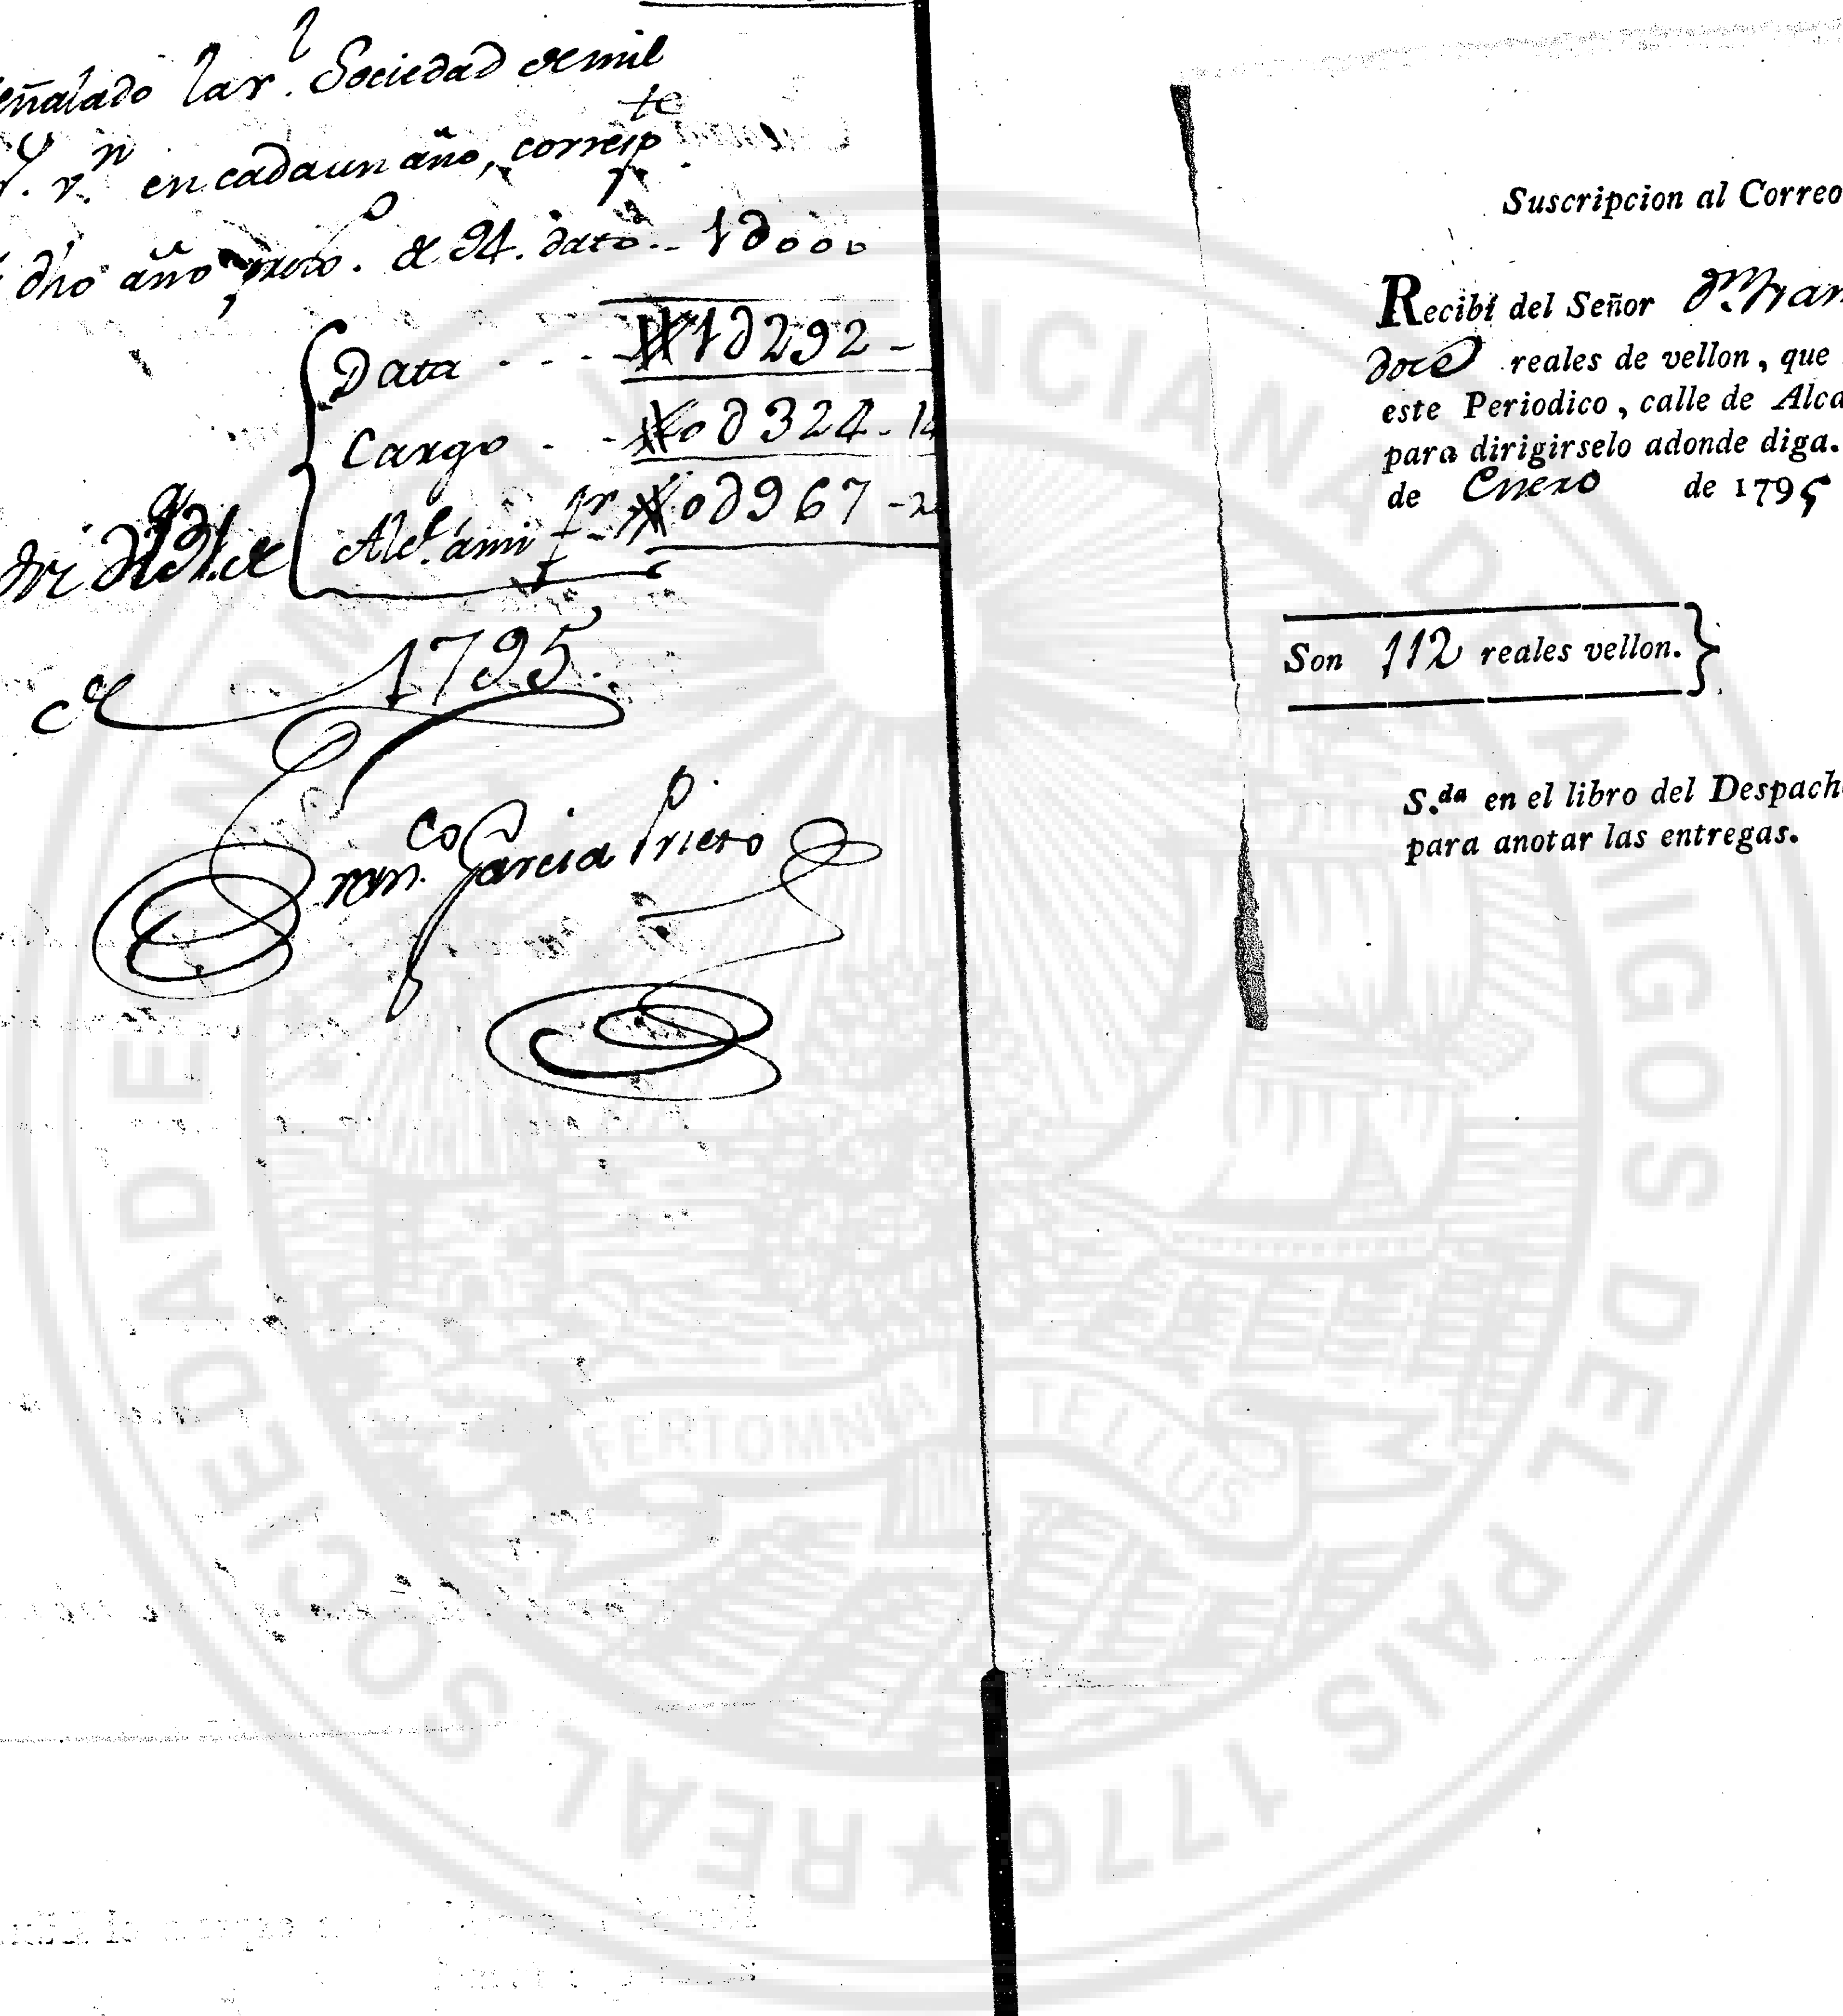 eñalado la r.l Sociedad de mil
r.s v.n en cada un año, corresp.te
dho año proxo. de 94. dato.. 1d000
Data - - - 1d292 -
Cargo - - 0d324 - 14
Alc.e á mi f.r 0d967 - 2
Madrid
de 1795.
Fran.co Garcia Prieto
Suscripcion al Correo
Recibí del Señor D.n Fran
doce reales de vellon, que
este Periodico, calle de Alca
para dirigirselo adonde diga.
de Enero de 1795
Son 112 reales vellon.}
S.da en el libro del Despach
para anotar las entregas.
REAL SOCIEDAD ECONOMICA VALENCIANA DE AMIGOS DEL PAIS 1776
FERT OMNIA TELLUS